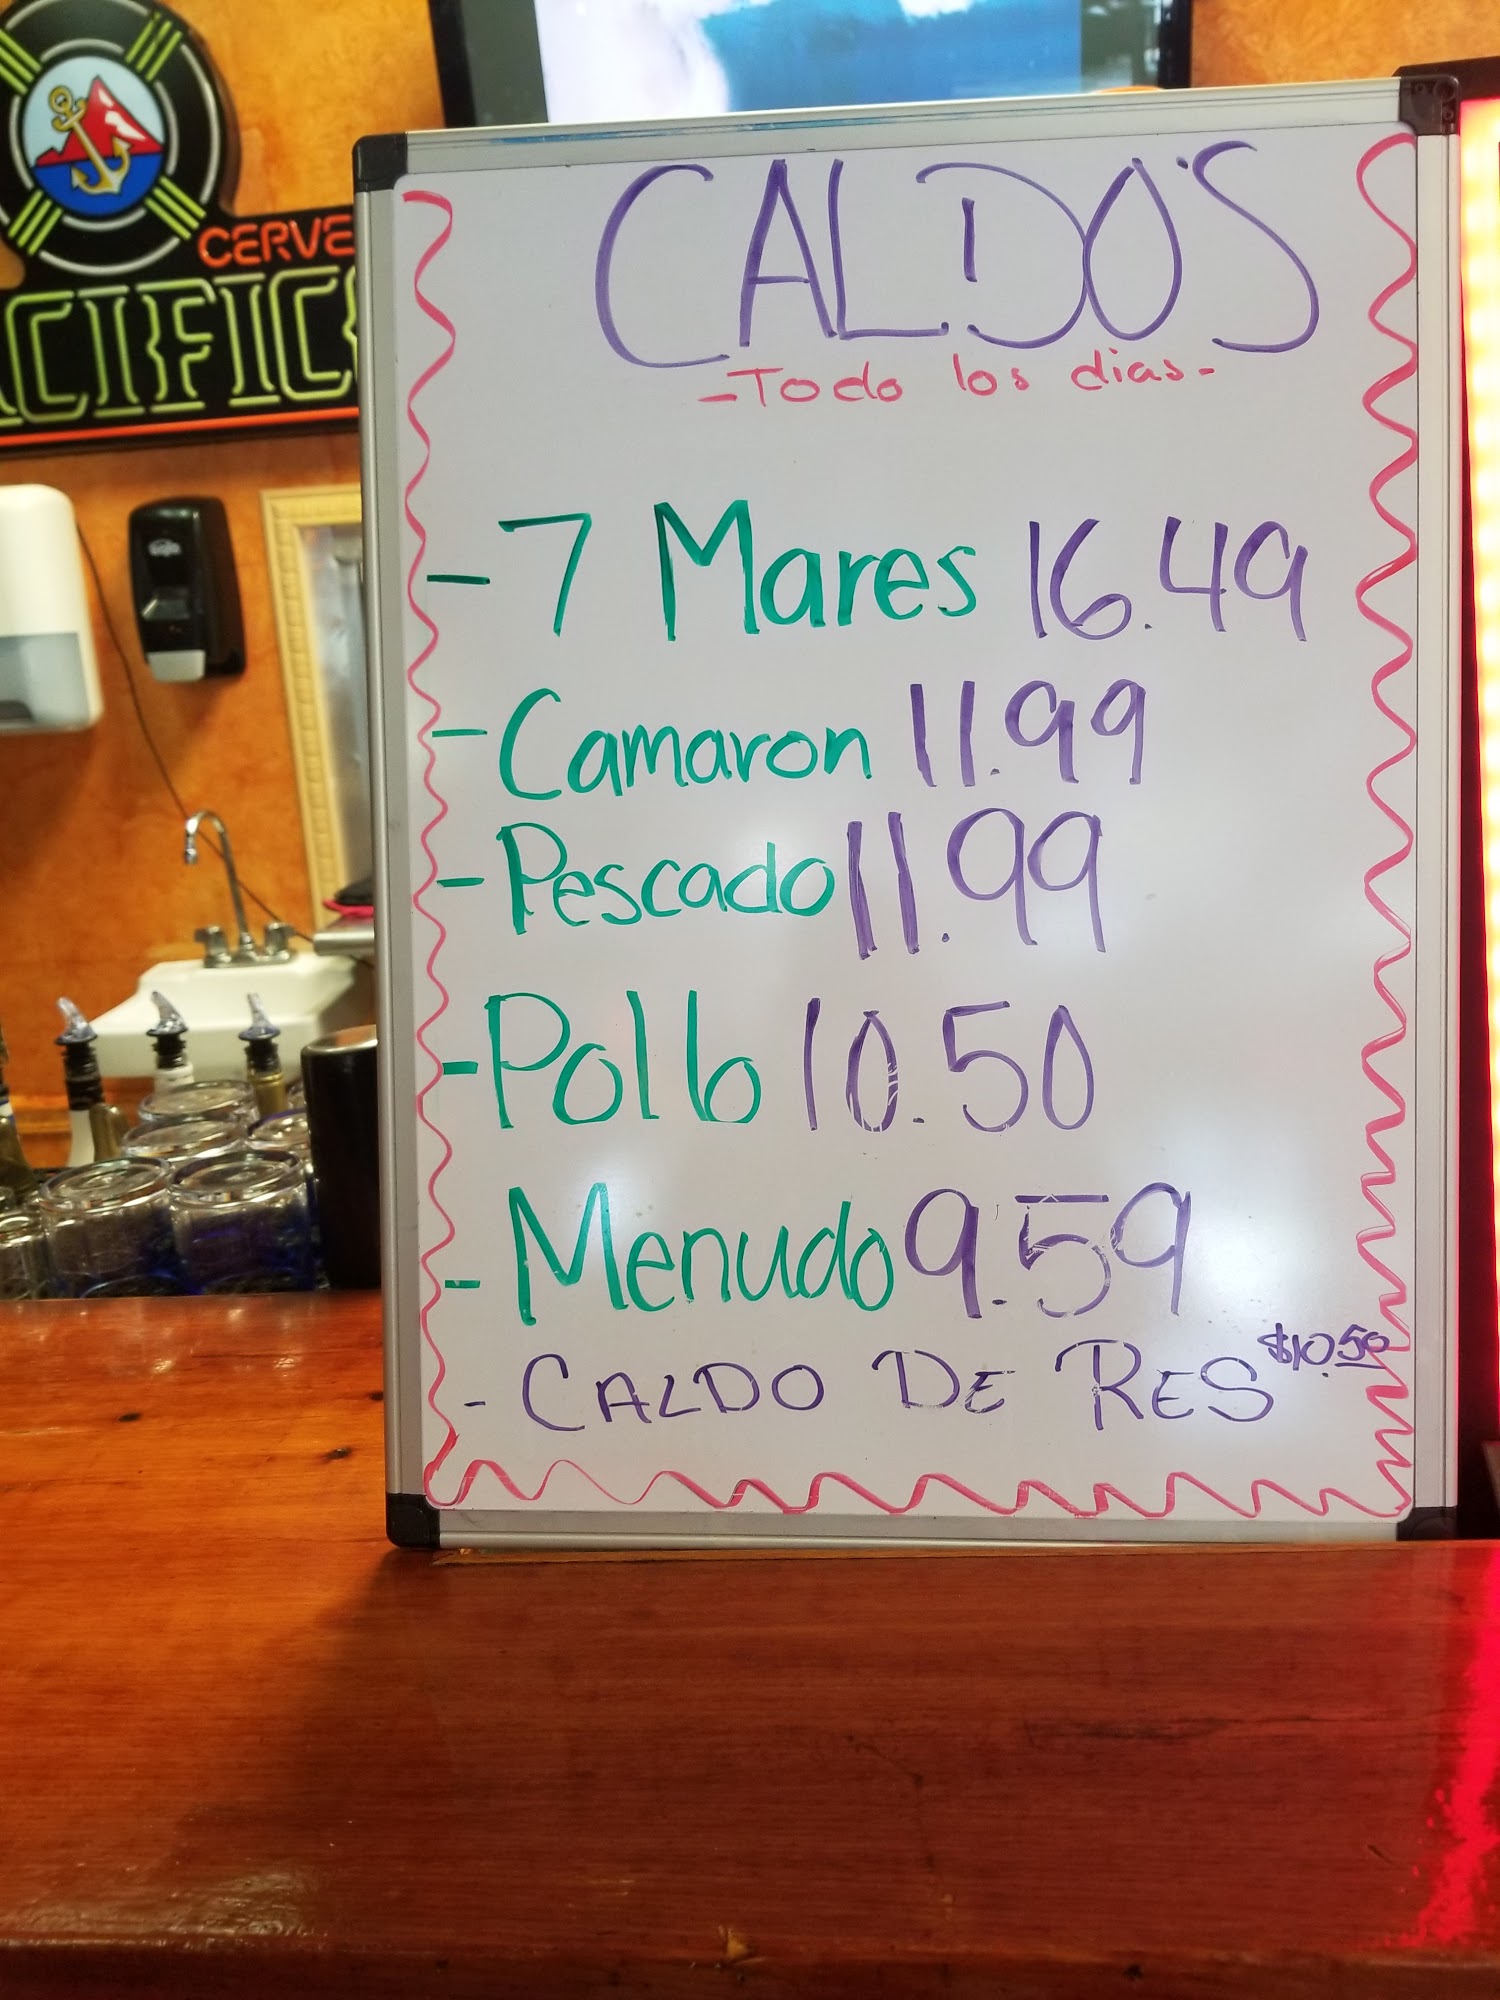 CERVE
CIFIC
CALDO'S
-Todo los dias-
- 7 Mares 16.49
- Camaron 11.99
- Pescado 11.99
- Pollo 10.50
- Menudo 9.59
- CALDO DE RES $10.50